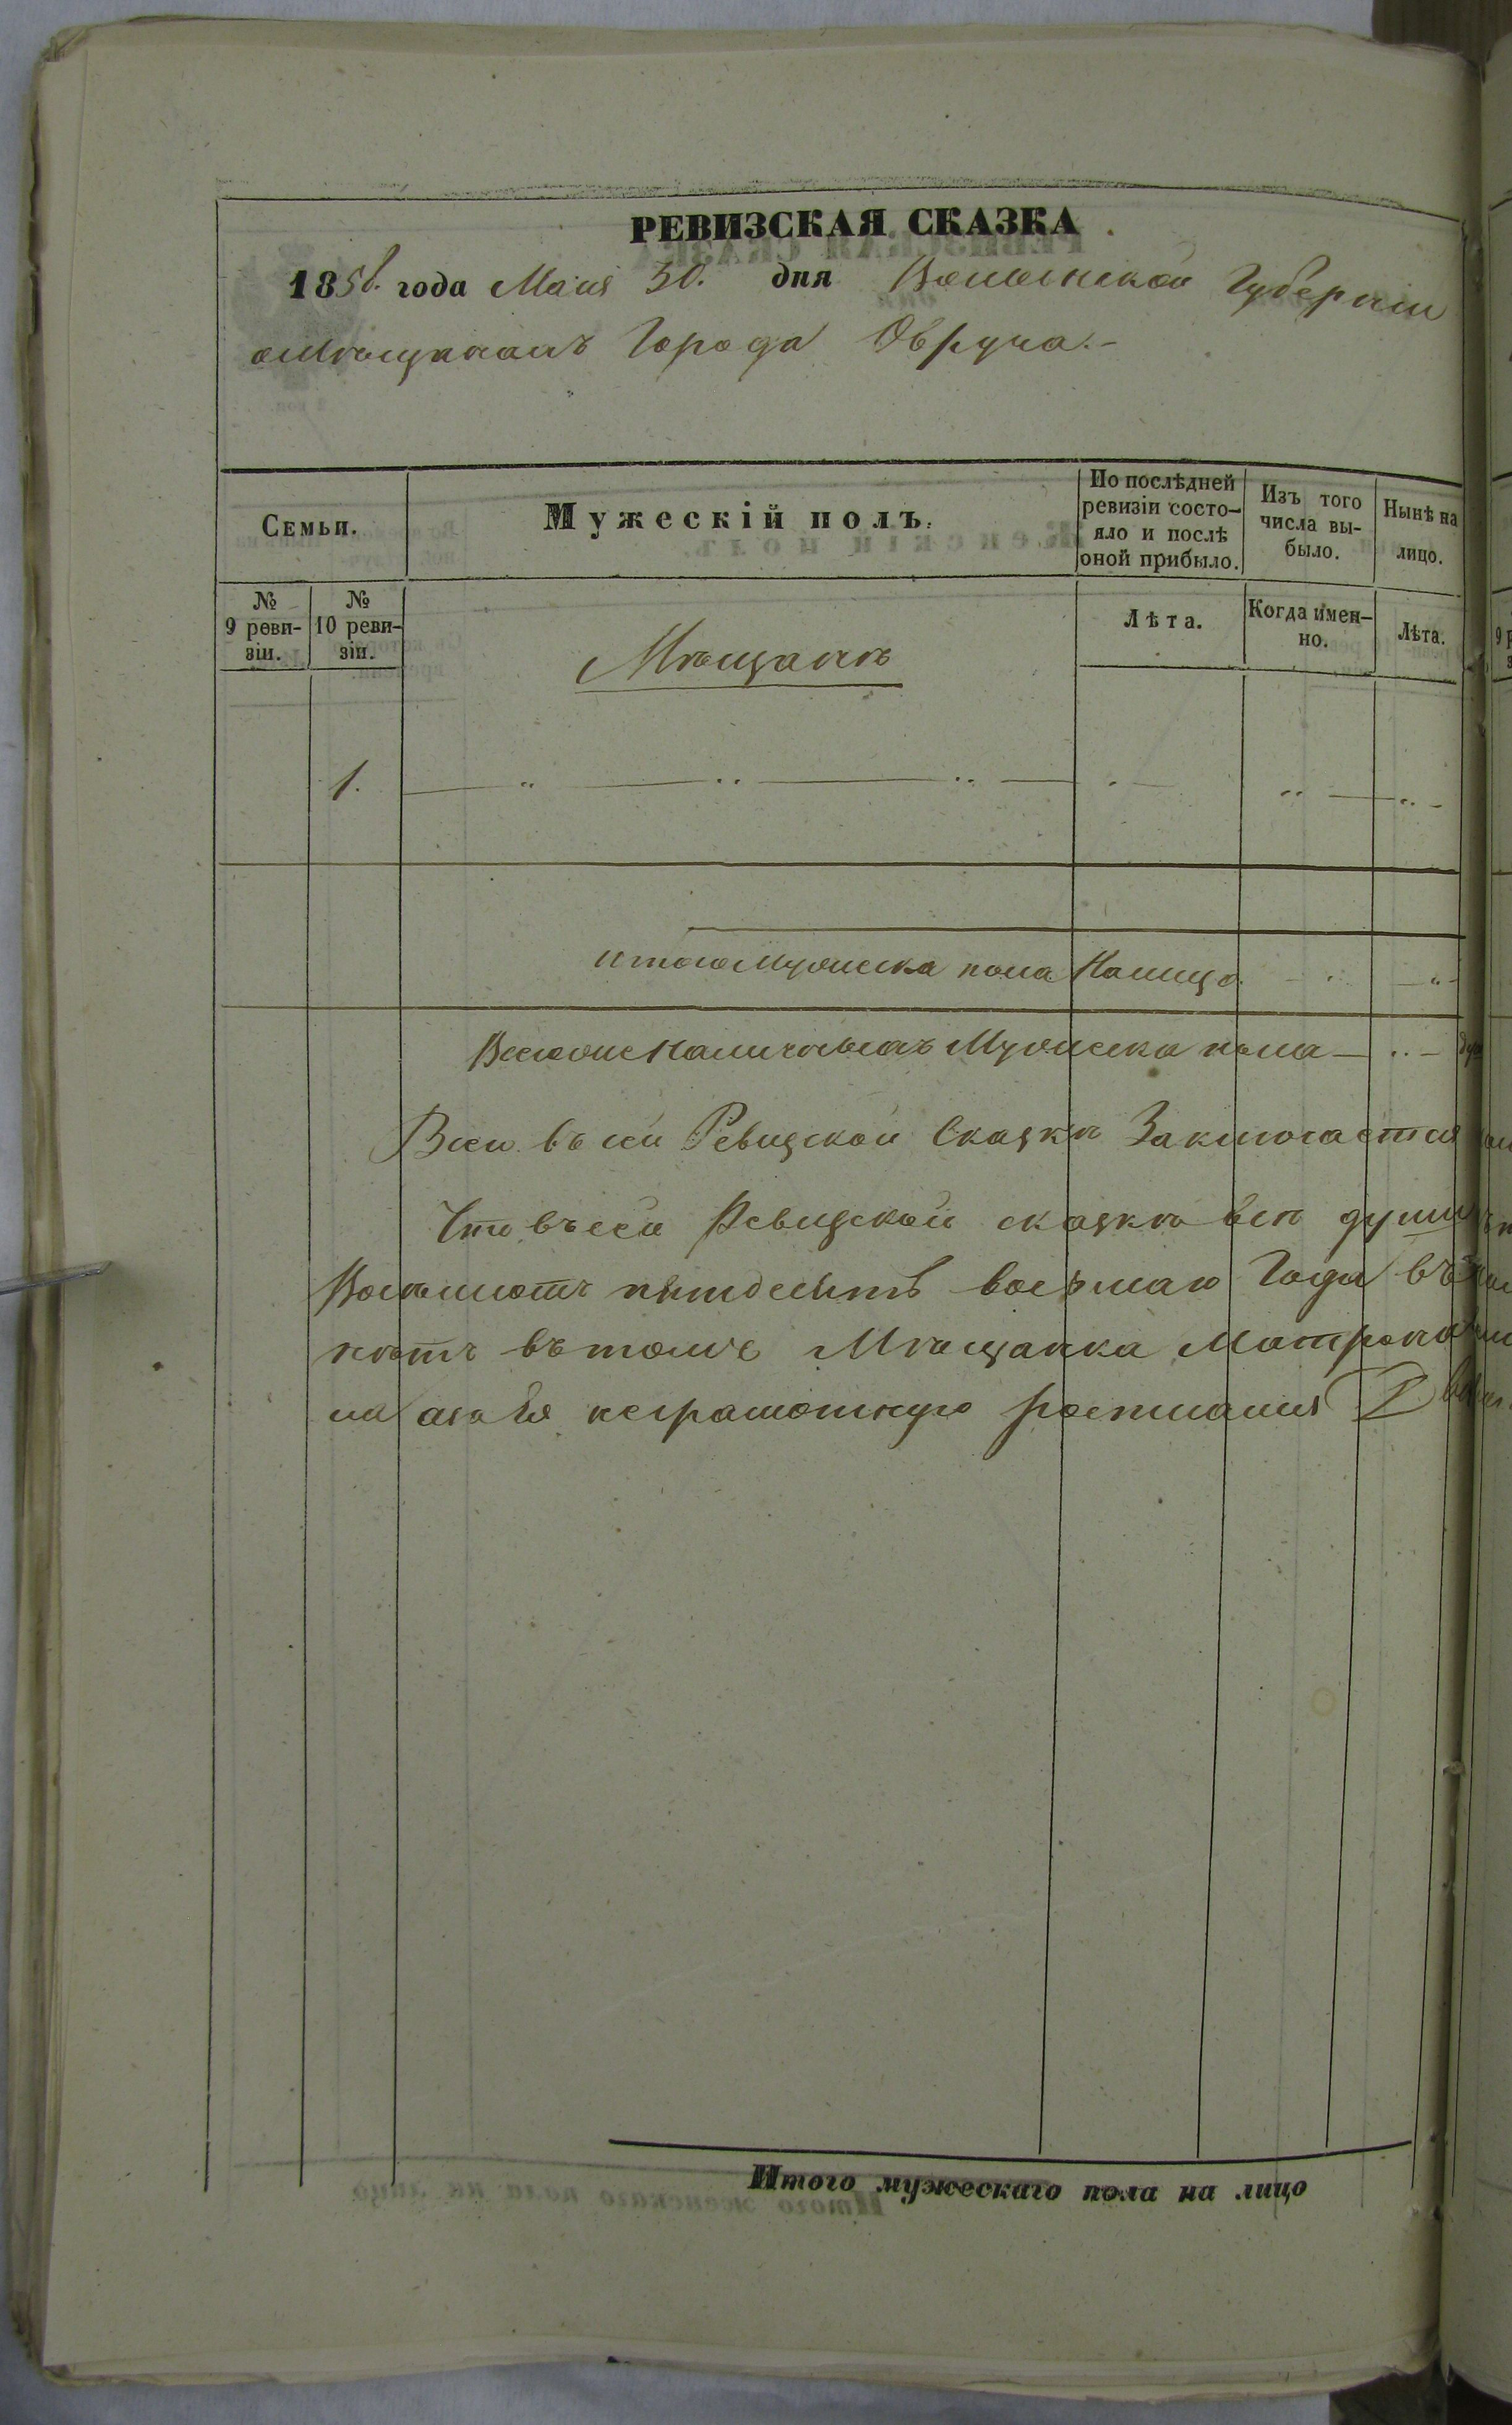 РЕВИЗСКАЯ СКАЗКА
1858. года Маія 30. дня Волынской Губерніи
о мѣщанахъ Города Овруча.-
Семьи.
Мужескій полъ.
По послѣдней ревизіи состо-
яло и послѣ
оной прибыло.
Изъ того
числа вы-
было.
Нынѣ на
лицо.
№
9 реви-
зіи.
№
10 реви-
зіи.
Мѣщанѣ
Лѣта.
Когда имен-
но.
Лѣта.
1.
итого Мужеска пола Налицо
Всего же наличныхъ Мужеска пола
Всего въ сей Ревизской Сказкѣ Заключается
Что въ сей Ревизской сказкѣ всѣ души
Восемьсотъ пятдесятъ восьмаго Года въ
нѣтъ въ томъ Мѣщанка Матрона
на азаЕя неграмотную
Итого мужескаго пола на лицо